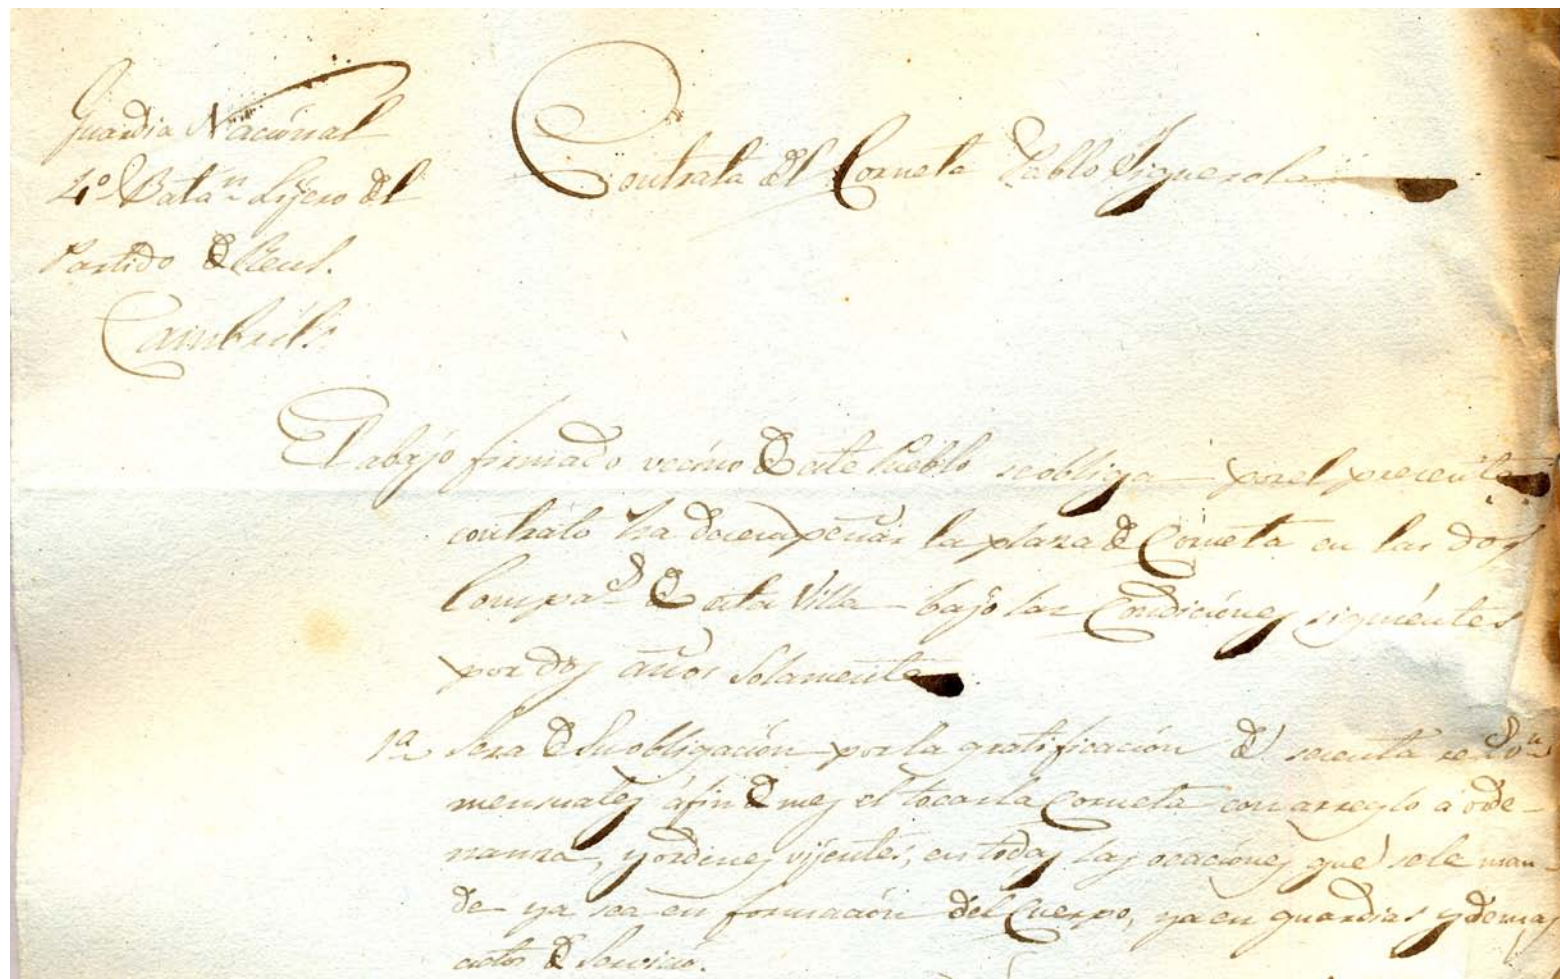 Guardia Nacional
4º Batan Lijero del
Partido de Reus.
Cambrils
Contrata del Corneta Pablo Figuerola
El abajo firmado vecino de este Pueblo se obliga por el precente
contrato ha decempeñar la plaza de Corneta en las dos
Compas de esta Villa bajo las Condiciónes siguientes
por dos años Solamente
1a Sera de su obligación por la gratificación de secenta rs von
mensuales á fin de mes el tocar la Corneta con arreglo á orde-
nanza, y ordenes vijentes, en todas las ocaciónes que se le man-
de ya sea en formación del Cuerpo, ya en guardias y demas
actos de Servicio.